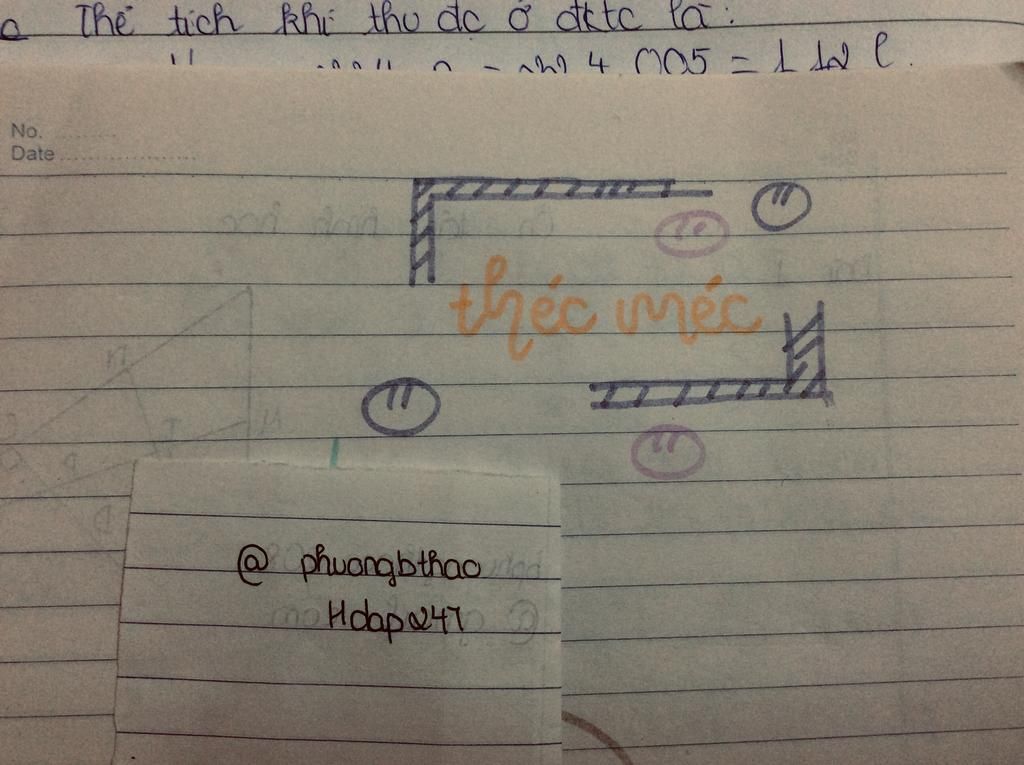 Thể tích khí thu đc ở đktc là:
4 . 0,05 = 1,12 l.
No.
Date
théc méc
@ phuongbthao
Hdap247